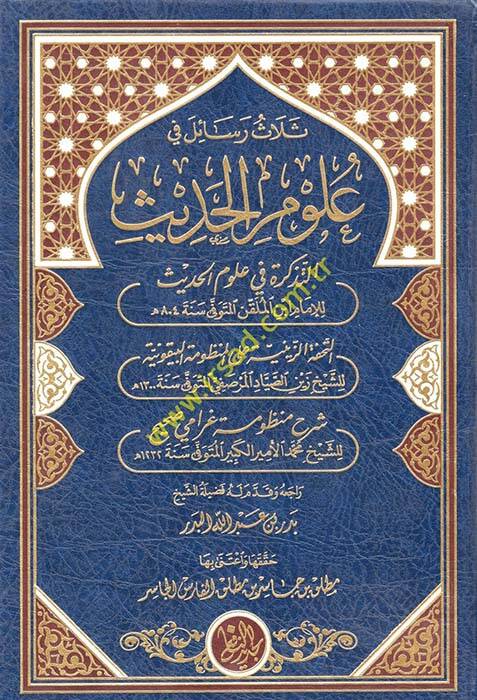 ثَلَاثُ رَسَائِلَ فِي
عُلُومِ الْحَدِيثِ
التذكرة في علوم الحديث
للإمام ابن الملقن المتوفى سنة ٨٠٤هـ
التحفة الزينية على المنظومة البيقونية
للشيخ زين الصياد المرصفي المتوفى سنة ١٣٠٠هـ
شرح منظومة غرامي صحيح
للشيخ محمد الأمير الكبير المتوفى سنة ١٢٣٢هـ
راجعه وقدم له فضيلة الشيخ
بدر بن عبد الله البدر
حققها واعتنى بها
مطلق بن جاسر بن مطلق الفارس الجاسر